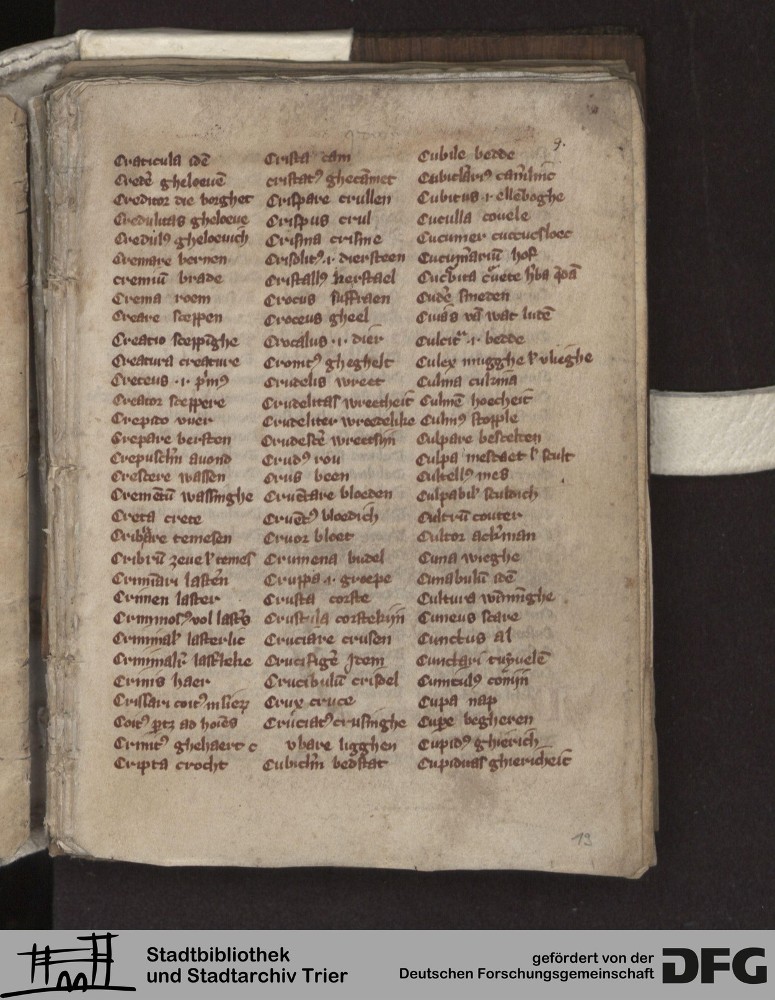 9.
Craticula idē
Credē gheloeuē
Creditor die borghet
Credulitas gheloeue
Credulꝰ gheloeuich
Cremare bernen
cremiū brade
Crema roem
Creare sceppen
Creatio sceppīghe
Creatura creature
Creteus ·i· pͥmꝰ
Creator sceppere
Crepido vuer
Crepare bersten
Crepusclm̄ auond
Crescere wassen
Cremētū wassinghe
Creta crete
Cribͣre temesen
Cribrū zeue lˀ temes
Criminari lastˀen
Crimen laster
Criminosꝰ vol lastˀs
Criminalˀ lasterlic
Crinis haer
Coitꝰ ptꝫ ad hoīēs
Crinitꝰ ghehaert
Cripta crocht
Crista cam
cristatꝰ ghecāmet
Crispare crullen
Crispus crul
Crisma crisme
Crisolitꝰ ·i· diersteen
Cristallꝰ kerstael
Crocus suffraen
Croceus gheel
Crocalus ·i· dier
Crudelis wreet
Crudelitas wreetheit
Crudeliter wreedelike
Crudescē wreetsijn
Crudꝰ rou
Crus been
Cruētare bloeden
Cruētꝰ bloedich
Cruor bloet
Crumena budel
Cruppa ·i· groepe
Crusta corste
Crustula corstekijn
Cruciare crusen
Crucifigē Jtem
Crucibulū crisdel
Crux cruce
Cruciatꝰ crusinghe
c vbare ligghen
Cubiclm̄ bedstat
Cubile bedde
Cubiclariꝰ camˀlinc
Cubitus ·i· elleboghe
Cuculla couele
Cucumer cuccucsloec
Cucumariū hof
Cudē smeden
Cuiās vā wat lutē
Culcitͣ ·i· bedde
Culex mugghe lˀ vlieghe
Culma culmia
Culmē hoecheit
Culmꝰ stopple
Culpare beschelten
Culpa mesdaet lˀ scult
Cultellꝰ mes
Culpabilˀ sculdich
Cultrū couter
Cultor ackˀman
Cuna wieghe
Cunabulū idē
Cultura winninghe
Cuneus scare
Cunctus al
Cunctari twyuelē
Cuniculꝰ conijn
Cupa nap
Cupe begheren
Cupidꝰ ghierich
Cupiditas ghiericheit
19
Stadtbibliothek
und Stadtarchiv Trier
gefördert von der
Deutschen Forschungsgemeinschaft
DFG